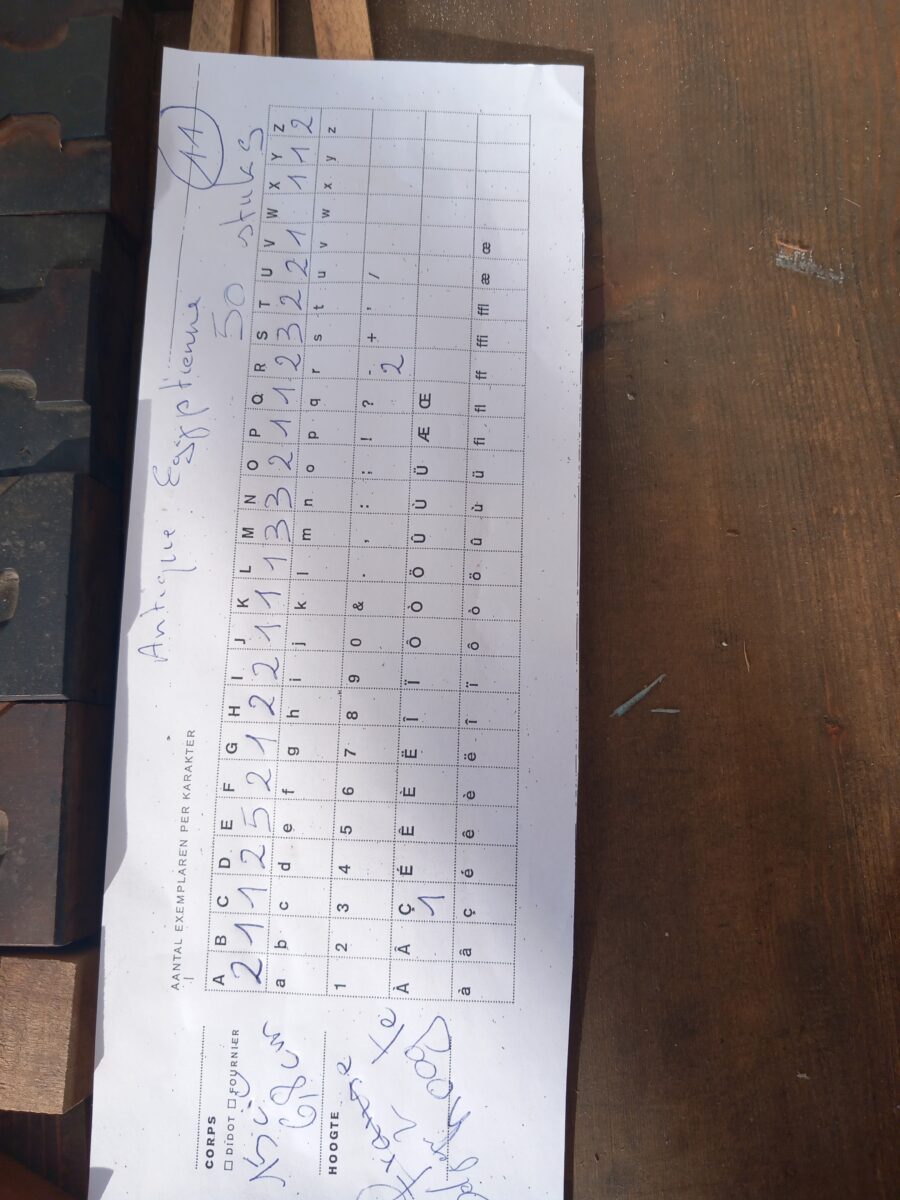 Antique Egyptienne
11
50 stuks
AANTAL EXEMPLAREN PER KARAKTER
A B C D E F G H I J K L M N O P Q R S T U V W X Y Z
2 1 1 2 5 2 1 2 2 1 1 1 3 3 2 1 1 2 3 2 2 1 1 1 2
a b c d e f g h i j k l m n o p q r s t u v w x y z
1 2 3 4 5 6 7 8 9 0 & . , : ; ! ? - + ' /
2
À Â Ç É Ê È Ë Î Ï Ô Ò Ö Û Ù Ü Æ Œ
1
à â ç é ê è ë î ï ô ò ö û ù ü fi fl ff ffi ffl æ œ
CORPS
DIDOT FOURNIER
6,8 cm
HOOGTE
te
hoog